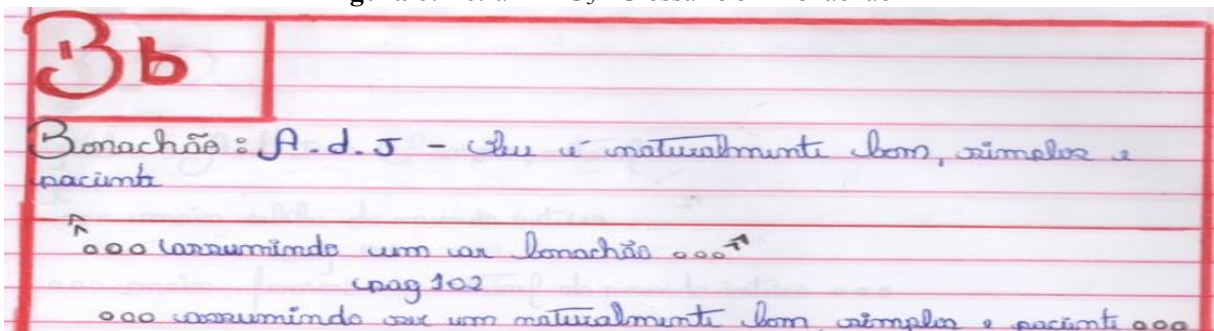 Bb
Bonachão: A.d.J - Que é naturalmente bom, simples e
paciente
"ooo assumindo um ar bonachão ooo"
pag 102
ooo assumindo um naturalmente bom simples e paciente ooo